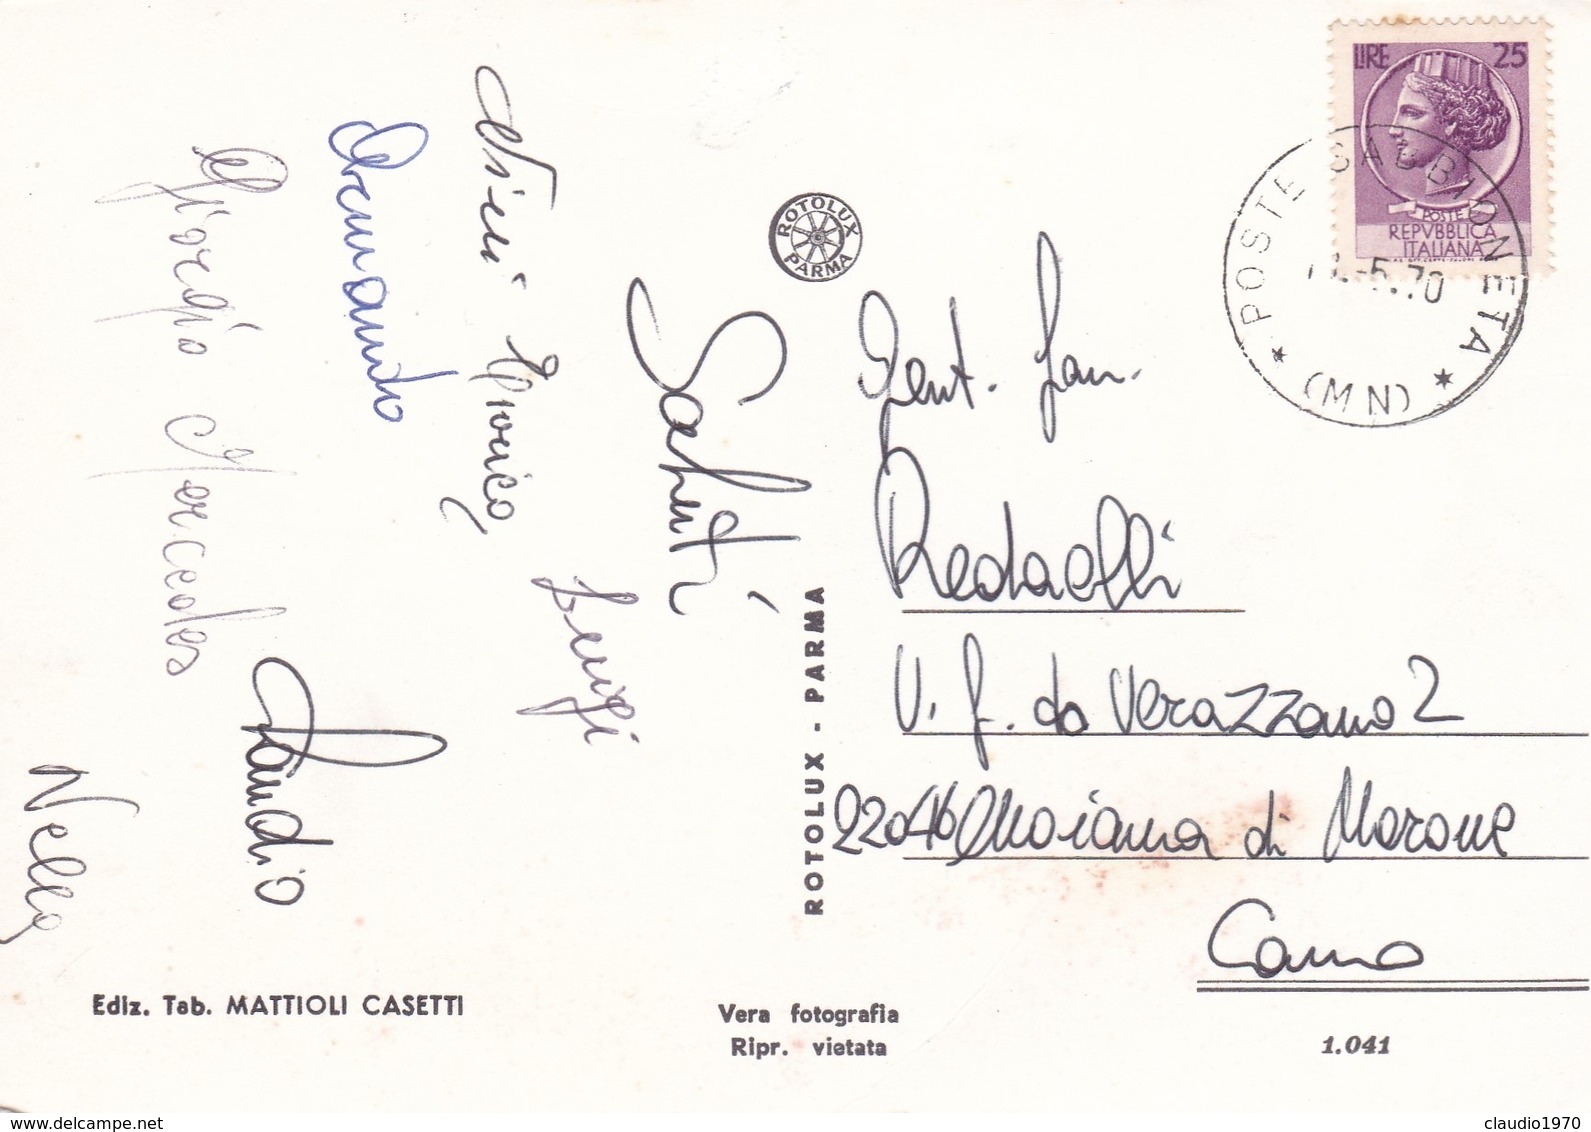 LIRE 25
POSTE
REPVBBLICA
ITALIANA
POSTE SABBIONETA
-5.70
* (MN) *
ROTOLUX
PARMA
Saluti
Luigi
Enrica
Armando
Giorgio Mercedes
Claudio
Nella
ROTOLUX - PARMA
Gent. Fam.
Redaelli
V. G. da Verazzano 2
22046 Moiana di Merone
Como
Ediz. Tab. MATTIOLI CASETTI
Vera fotografia
Ripr. vietata
1.041
www.delcampe.net
claudio1970